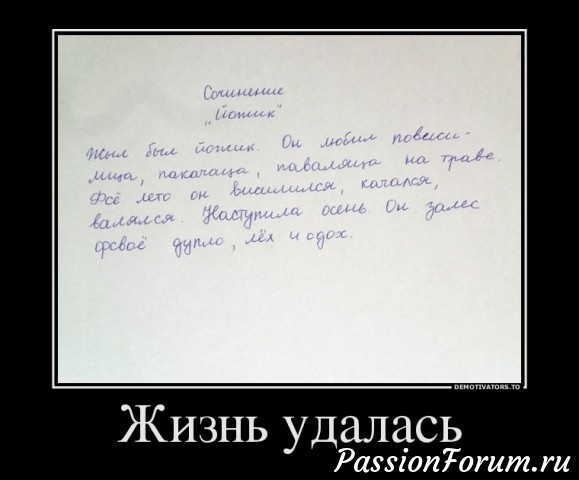 Сочинение
„Йожик"
Жыл был йожик. Он любил повесили-
лица, пакачаца, паваляца на траве.
Фсё лето он висилился, качался,
валялся. Наступила осень. Он залес
фсваё дупло, лёх и сдох.
DEMOTIVATORS.TO
Жизнь удалась
PassionForum.ru